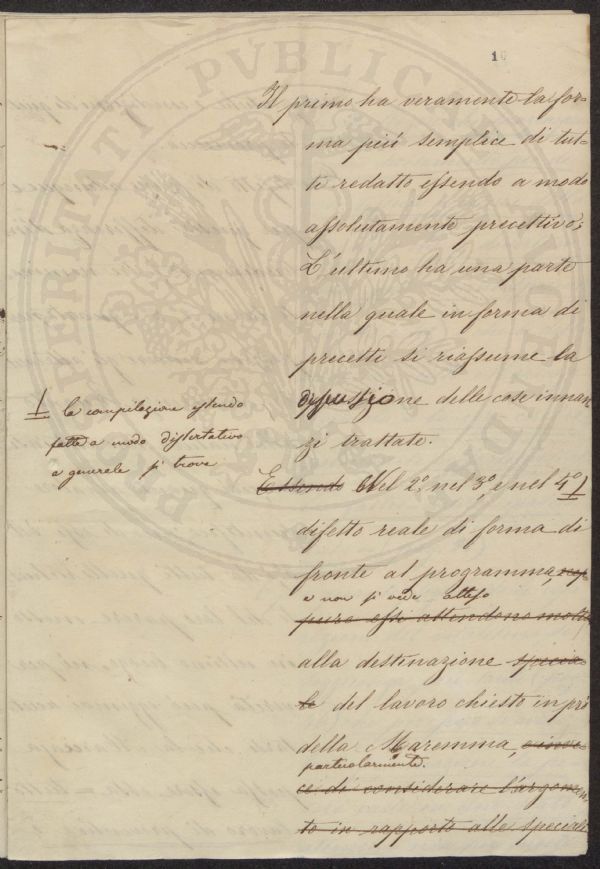 10
Il primo ha veramente la for-
ma più semplice di tut-
ti redatto essendo a modo
assolutamente precettivo;
L'ultimo ha una parte
nella quale in forma di
precetti si riassume la
delle cose innan
zi trattate.
1 la compilazione essendo
fatta a modo dissertativo
e generale si trova
Essendo Nel 2º, nel 3º, e nel 4º 1
difetto reale di forma di
fronte al programma, nep
e non si vede atteso
pure essi attendono molto
alla destinazione specia
le del lavoro chiesto in prò
della Maremma, e inve
particolarmente.
ce di considerare l'argomen
to in rapporto alle speciali
PROSPERITATI PUBLICAE AUGENDAE